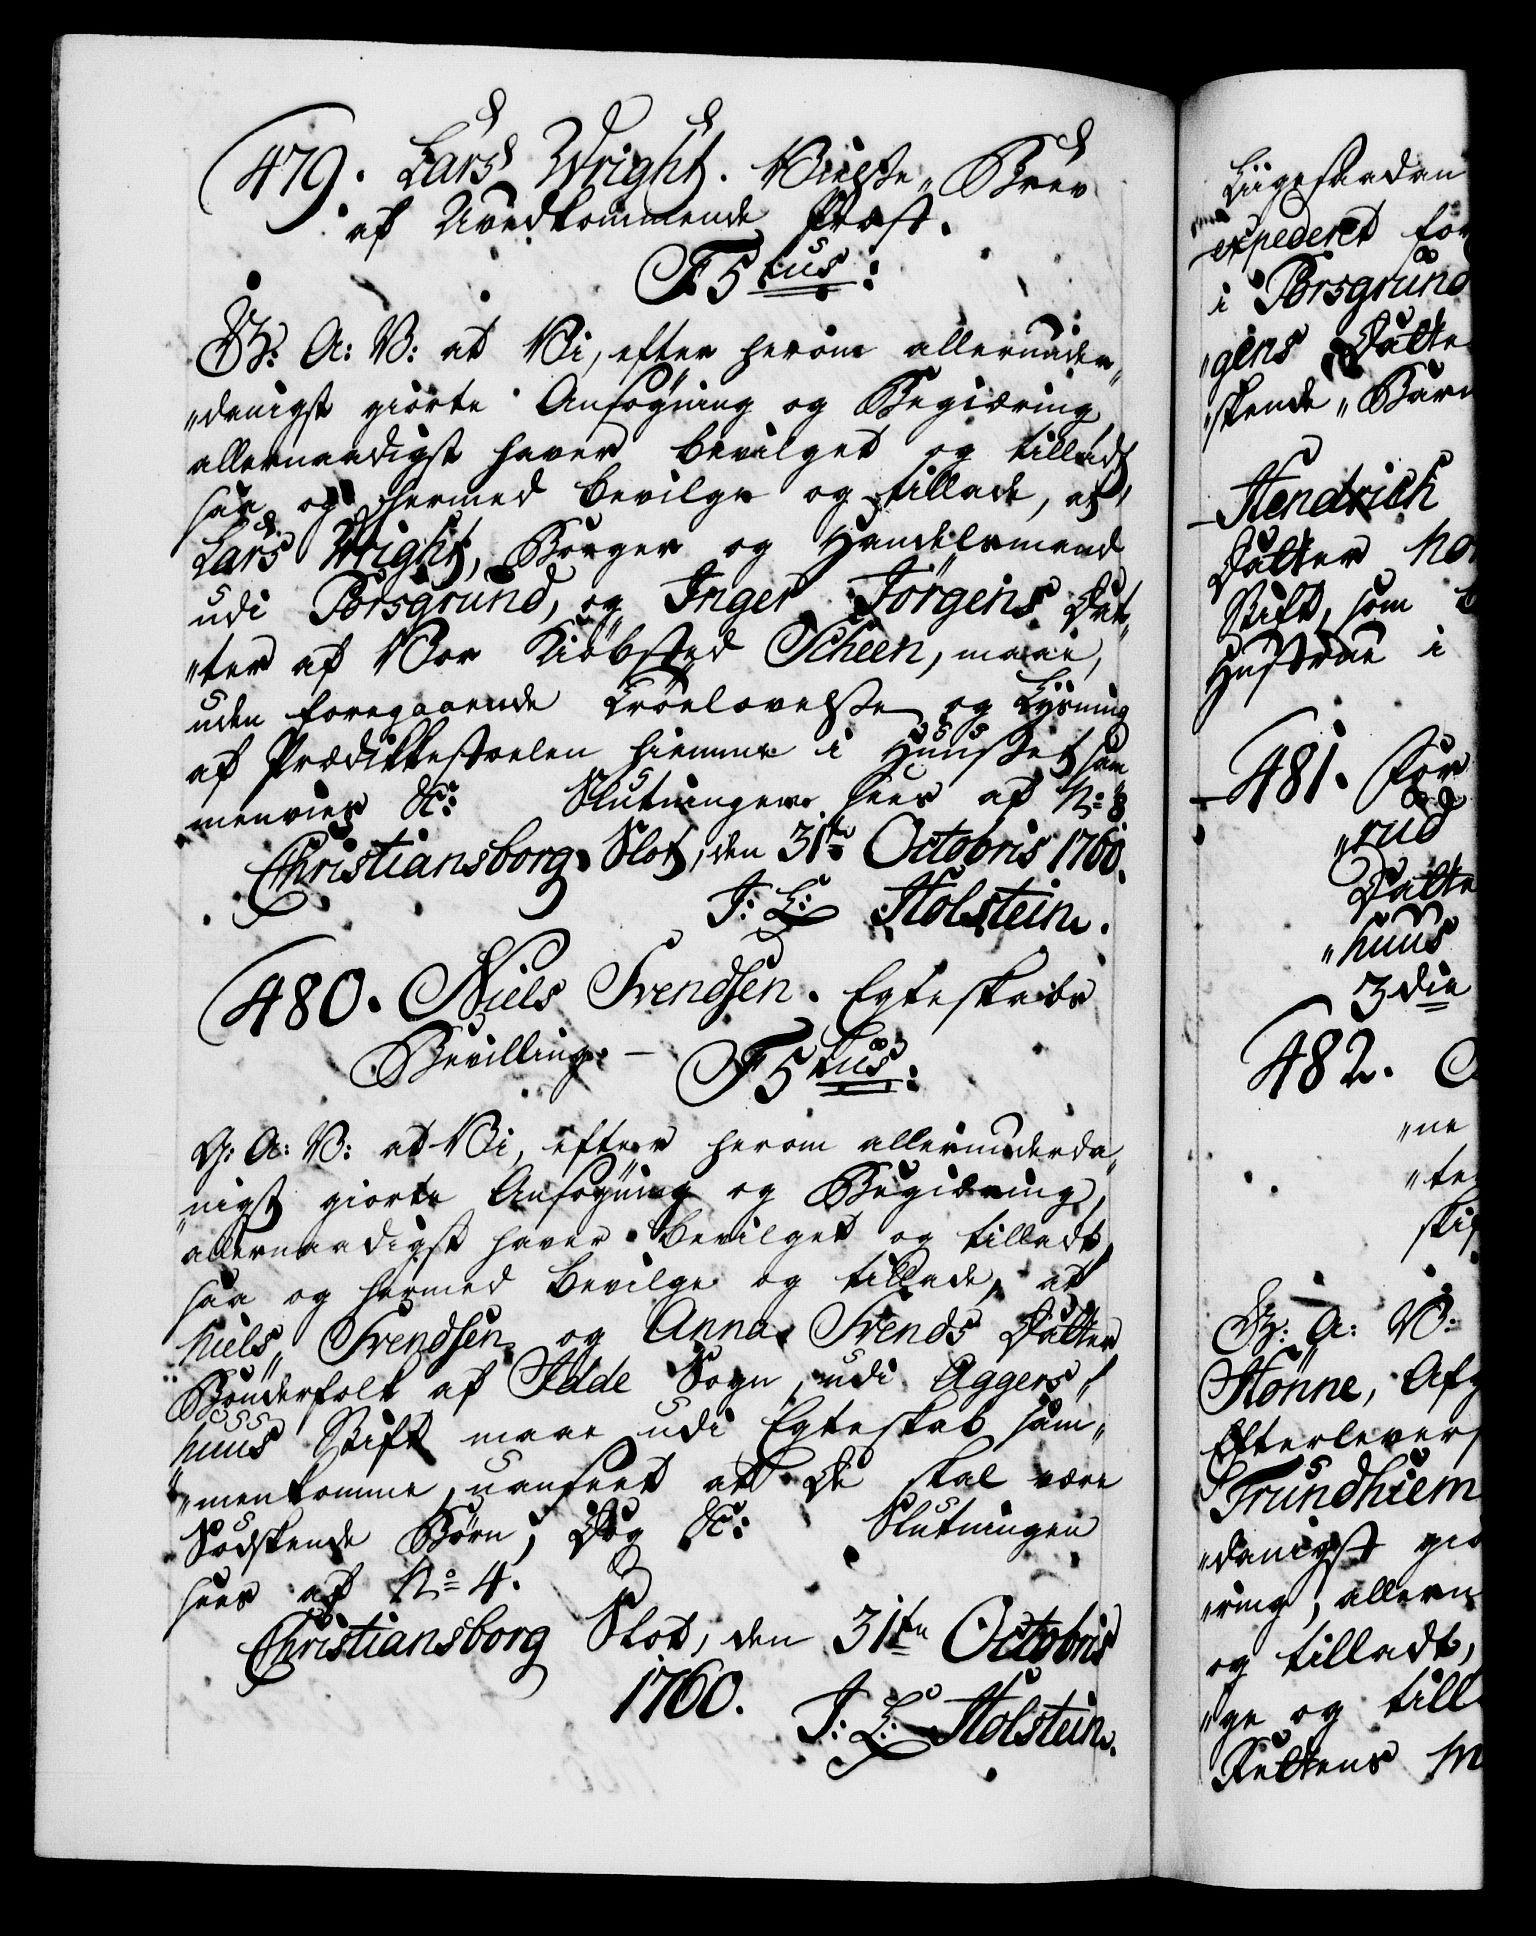 479. Lars Wright. Vielse„Brev
af Uvedkommende Præst.
F5tus:
G: A: V: at Vi, efter herom allerunder„
„danigst giorte Ansøgning og Begiæring
allernaadigst haver bevilget og tilladt,
saa og hermed bevilge og tillade, at
Lars Wright, Borger og Handelsmand
udi Porsgrund, og Inger Jørgens Dat„
„ter af Vor Kiøbsted Scheen, maae,
uden foregaaende Troelovelse og Lysning
af Prædikkestoelen hiemme i Huuset sam„
menvies &c: Slutningen sees af No 8
Christiansborg Slot, den 31te Octobris 1760.
J: L: Holstein.
480. Niels Svendsen. Egteskabs
Bevilling. — F5tus:
G: A: V: at Vi, efter herom allerunderda„
„nigst giorte Ansøgning og Begiæring,
allernaadigst haver bevilget og tilladt,
saa og hermed bevilge og tillade, at
Niels Svendsen og Anna Svends Datter
Bønderfolk af Idde Sogn, udi Aggers„
huus Stift maae udi Egteskab sam„
„menkomme, uanseet at De skal være
Sødskende Børn; Dog &c: Slutningen
sees af No 4.
Christiansborg Slot, den 31te Octobris
1760.
J: L: Holstein.
Liigesaadan
expederet for
i Porsgrund
„gens Datte
„skende„Børn
Hendrich
Datter
Stift, som
Hustrue i
481. For
„rud
Datte
„huus
3die
482.
„ne
„te
G: A: V:
Hønne, Af
Efterlevers
Trundhiem
„danigst gio
„ring, allern
og tilladt,
„ge og till
Rettens